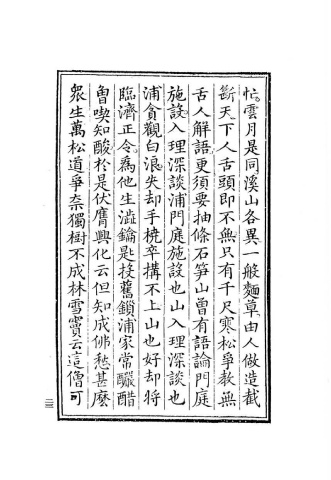 忙雲月是同溪山各異一般麵草由人做造截
斷天下人舌頭即不無只有千尺寒松爭教無
舌人解語更須要抽條石笋山曾有語論門庭
施設入理深談浦門庭施設也山入理深談也
浦貪觀白浪失却手橈卒搆不上山也好却將
臨濟正令為他生澁鑰匙投舊鎖浦家常釅醋
曾喫知酸於是伏膺興化云但知成佛愁甚麼
眾生萬松道爭奈獨樹不成林雪竇云這僧可